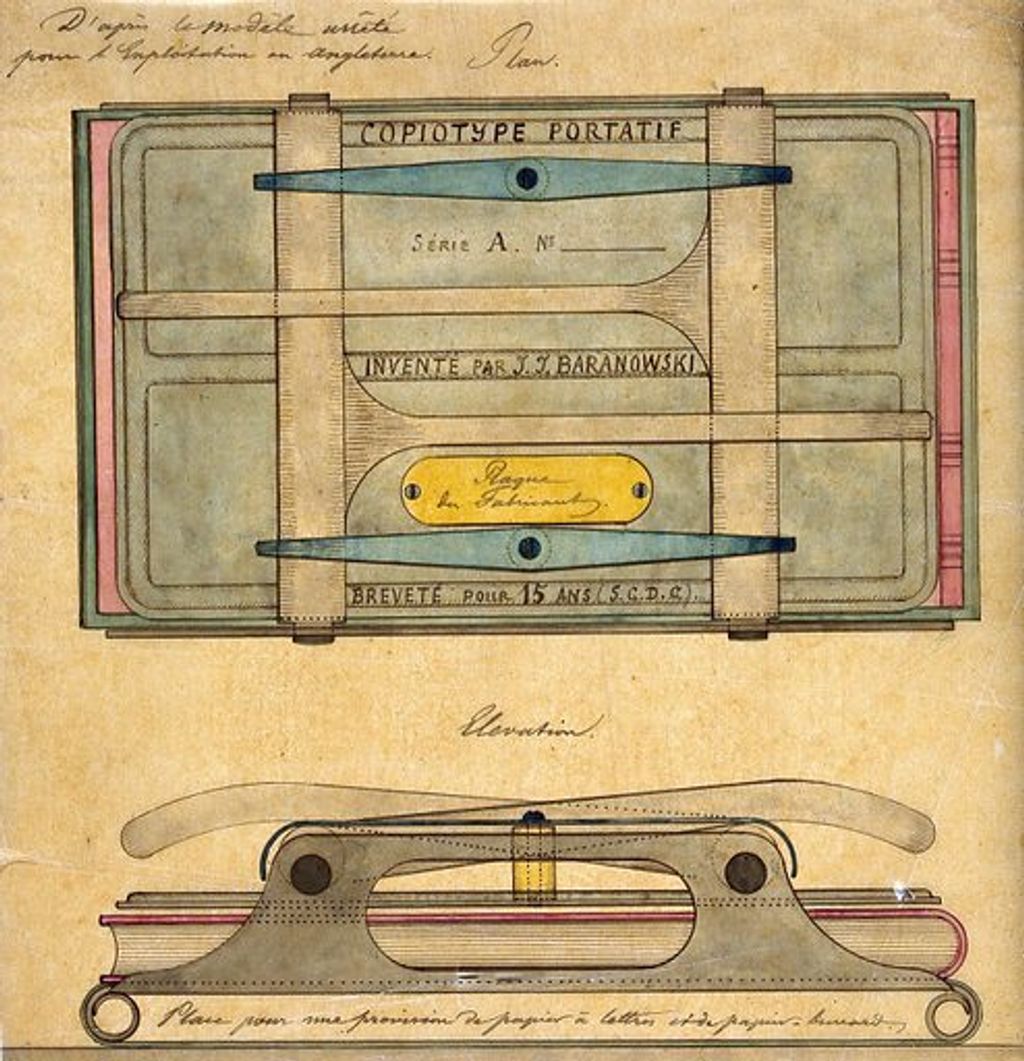 D'après le modèle arrêté
pour l'Exploitation en Angleterre.
Plan.
COPIOTYPE PORTATIF
SÉRIE A. No
INVENTÉ PAR J. J. BARANOWSKI
Plaque
du Fabricant
BREVETÉ POUR 15 ANS (S.G.D.G.).
Elevation.
Place pour une provision de papier à lettres et de papier-buvard